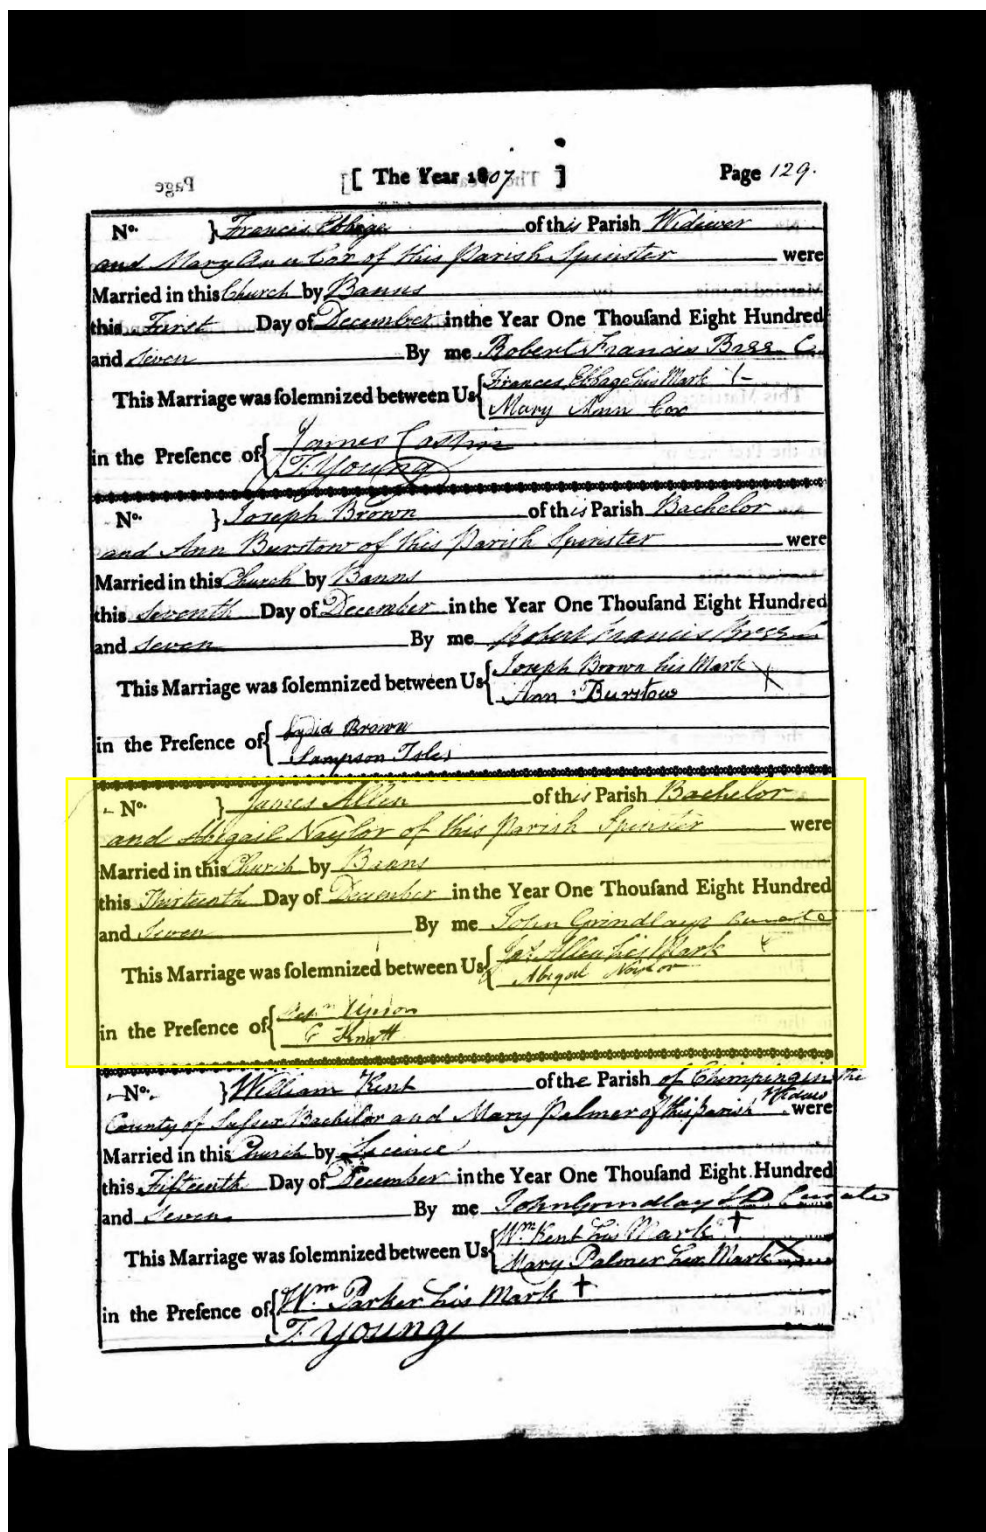 [ The Year 1807 ] Page 129.
No. } Francis Ebbage of this Parish Widower
and Mary Ann Cox of this Parish Spinster were
Married in this Church by Banns
this First Day of December in the Year One Thouſand Eight Hundred
and Seven By me Robert Francis Bree C.
This Marriage was ſolemnized between Us { Frances Ebbage his Mark
Mary Ann Cox
in the Preſence of { James
T. Young
No. } Joseph Brown of this Parish Bachelor
and Ann Burstow of this Parish Spinster were
Married in this Church by Banns
this Seventh Day of December in the Year One Thouſand Eight Hundred
and Seven By me Robert Francis Bree
This Marriage was ſolemnized between Us { Joseph Brown his Mark X
Ann Burstow
in the Preſence of { Lydia Brown
Sampson Isles
No. } James Allen of this Parish Bachelor
and Abigail Naylor of this Parish Spinster were
Married in this Church by Banns
this Thirteenth Day of December in the Year One Thouſand Eight Hundred
and Seven By me John Grindlay Curate
This Marriage was ſolemnized between Us { Jas. Allen his Mark X
Abigail Naylor
in the Preſence of { Upson
Knott
No. } William Kent of the Parish of Climping in the
County of Sussex Bachelor and Mary Palmer of this parish Widow were
Married in this Church by Licence
this Fifteenth Day of December in the Year One Thouſand Eight Hundred
and Seven By me John Grindlay Curate
This Marriage was ſolemnized between Us { Wm. Kent his Mark +
Mary Palmer her Mark X
in the Preſence of { Wm. Parker his Mark +
T. Young